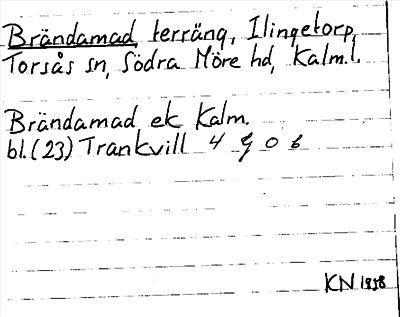 Brändamad, terräng, Ilingetorp,
Torsås sn, Södra Möre hd, Kalm.l.
Brändamad ek Kalm.
bl.(23) Trankvill 4 g 0 6
KN 1958